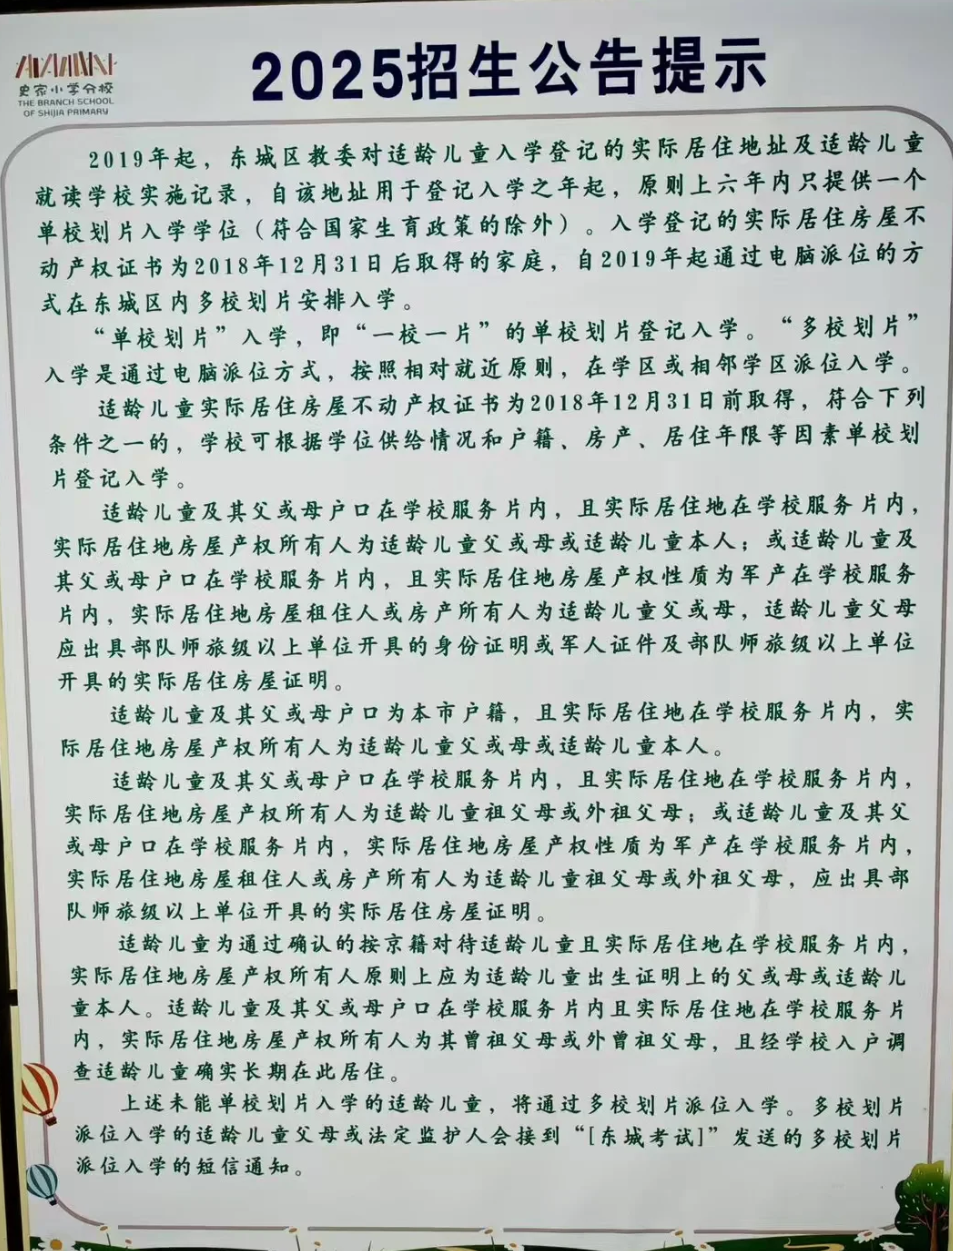 史家小学分校
THE BRANCH SCHOOL
OF SHIJIA PRIMARY
2025招生公告提示
2019年起，东城区教委对适龄儿童入学登记的实际居住地址及适龄儿童
就读学校实施记录，自该地址用于登记入学之年起，原则上六年内只提供一个
单校划片入学学位（符合国家生育政策的除外）。入学登记的实际居住房屋不
动产权证书为2018年12月31日后取得的家庭，自2019年起通过电脑派位的方
式在东城区内多校划片安排入学。
“单校划片”入学，即“一校一片”的单校划片登记入学。“多校划片”
入学是通过电脑派位方式，按照相对就近原则，在学区或相邻学区派位入学。
适龄儿童实际居住房屋不动产权证书为2018年12月31日前取得，符合下列
条件之一的，学校可根据学位供给情况和户籍、房产、居住年限等因素单校划
片登记入学。
适龄儿童及其父或母户口在学校服务片内，且实际居住地在学校服务片内，
实际居住地房屋产权所有人为适龄儿童父或母或适龄儿童本人；或适龄儿童及
其父或母户口在学校服务片内，且实际居住地房屋产权性质为军产在学校服务
片内，实际居住地房屋租住人或房产所有人为适龄儿童父或母，适龄儿童父母
应出具部队师旅级以上单位开具的身份证明或军人证件及部队师旅级以上单位
开具的实际居住房屋证明。
适龄儿童及其父或母户口为本市户籍，且实际居住地在学校服务片内，实
际居住地房屋产权所有人为适龄儿童父或母或适龄儿童本人。
适龄儿童及其父或母户口在学校服务片内，且实际居住地在学校服务片内，
实际居住地房屋产权所有人为适龄儿童祖父母或外祖父母；或适龄儿童及其父
或母户口在学校服务片内，实际居住地房屋产权性质为军产在学校服务片内，
实际居住地房屋租住人或房产所有人为适龄儿童祖父母或外祖父母，应出具部
队师旅级以上单位开具的实际居住房屋证明。
适龄儿童为通过确认的按京籍对待适龄儿童且实际居住地在学校服务片内，
实际居住地房屋产权所有人原则上应为适龄儿童出生证明上的父或母或适龄儿
童本人。适龄儿童及其父或母户口在学校服务片内且实际居住地在学校服务片
内，实际居住地房屋产权所有人为其曾祖父母或外曾祖父母，且经学校入户调
查适龄儿童确实长期在此居住。
上述未能单校划片入学的适龄儿童，将通过多校划片派位入学。多校划片
派位入学的适龄儿童父母或法定监护人会接到“[东城考试]”发送的多校划片
派位入学的短信通知。